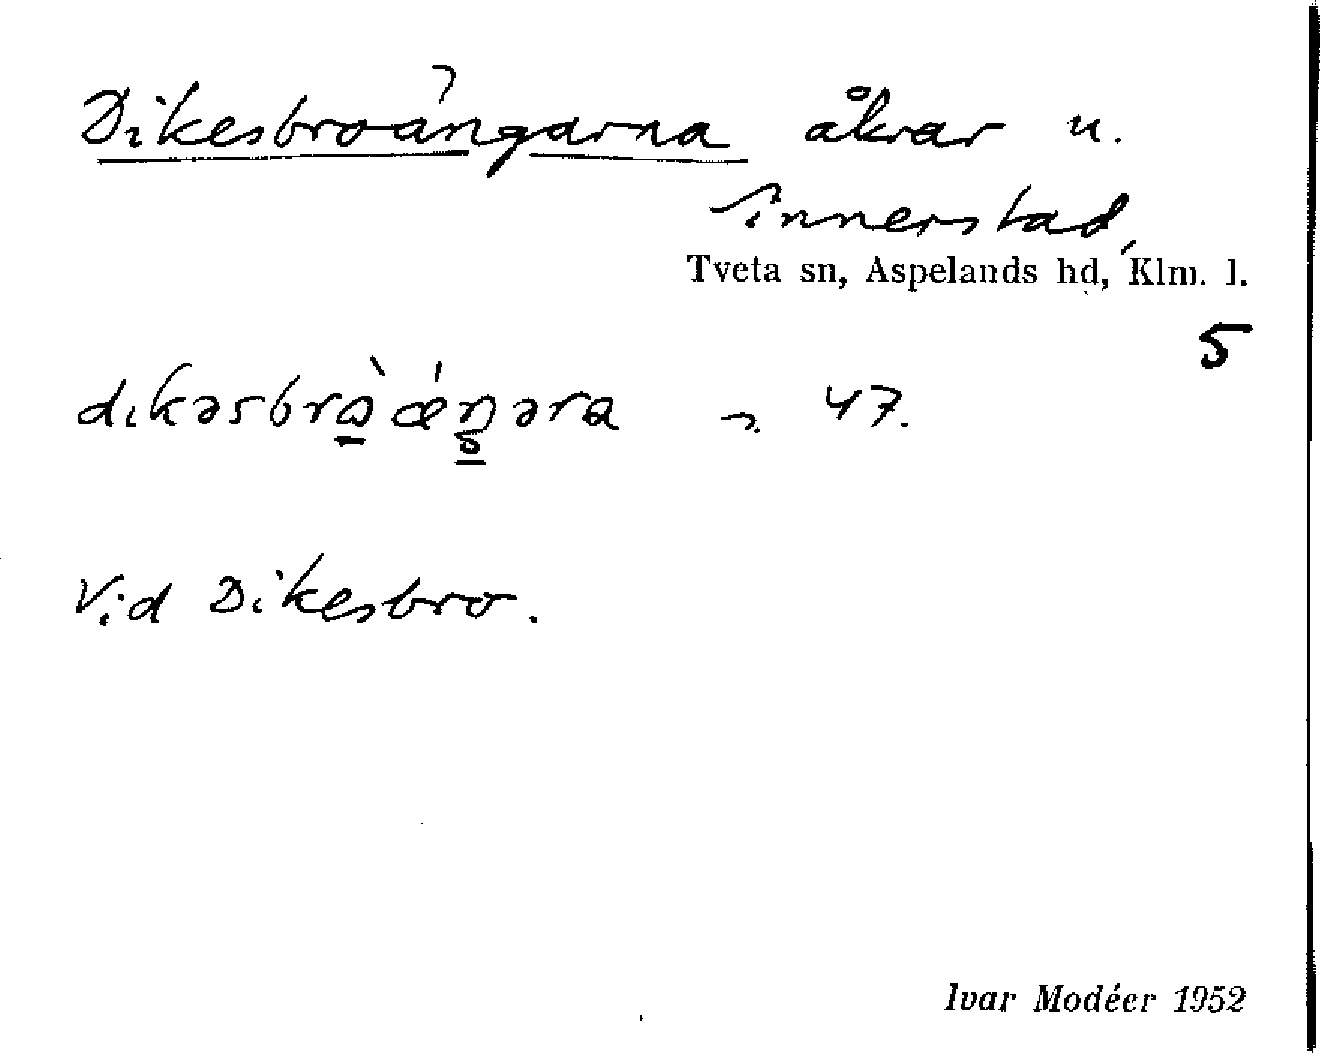 Dikesbroängarna åkrar u.
Innerstad,
Tveta sn, Aspelands hd, Klm. l.
5
dıkəsbrò̱ǽŋəra 47.
Vid Dikesbro.
Ivar Modéer 1952